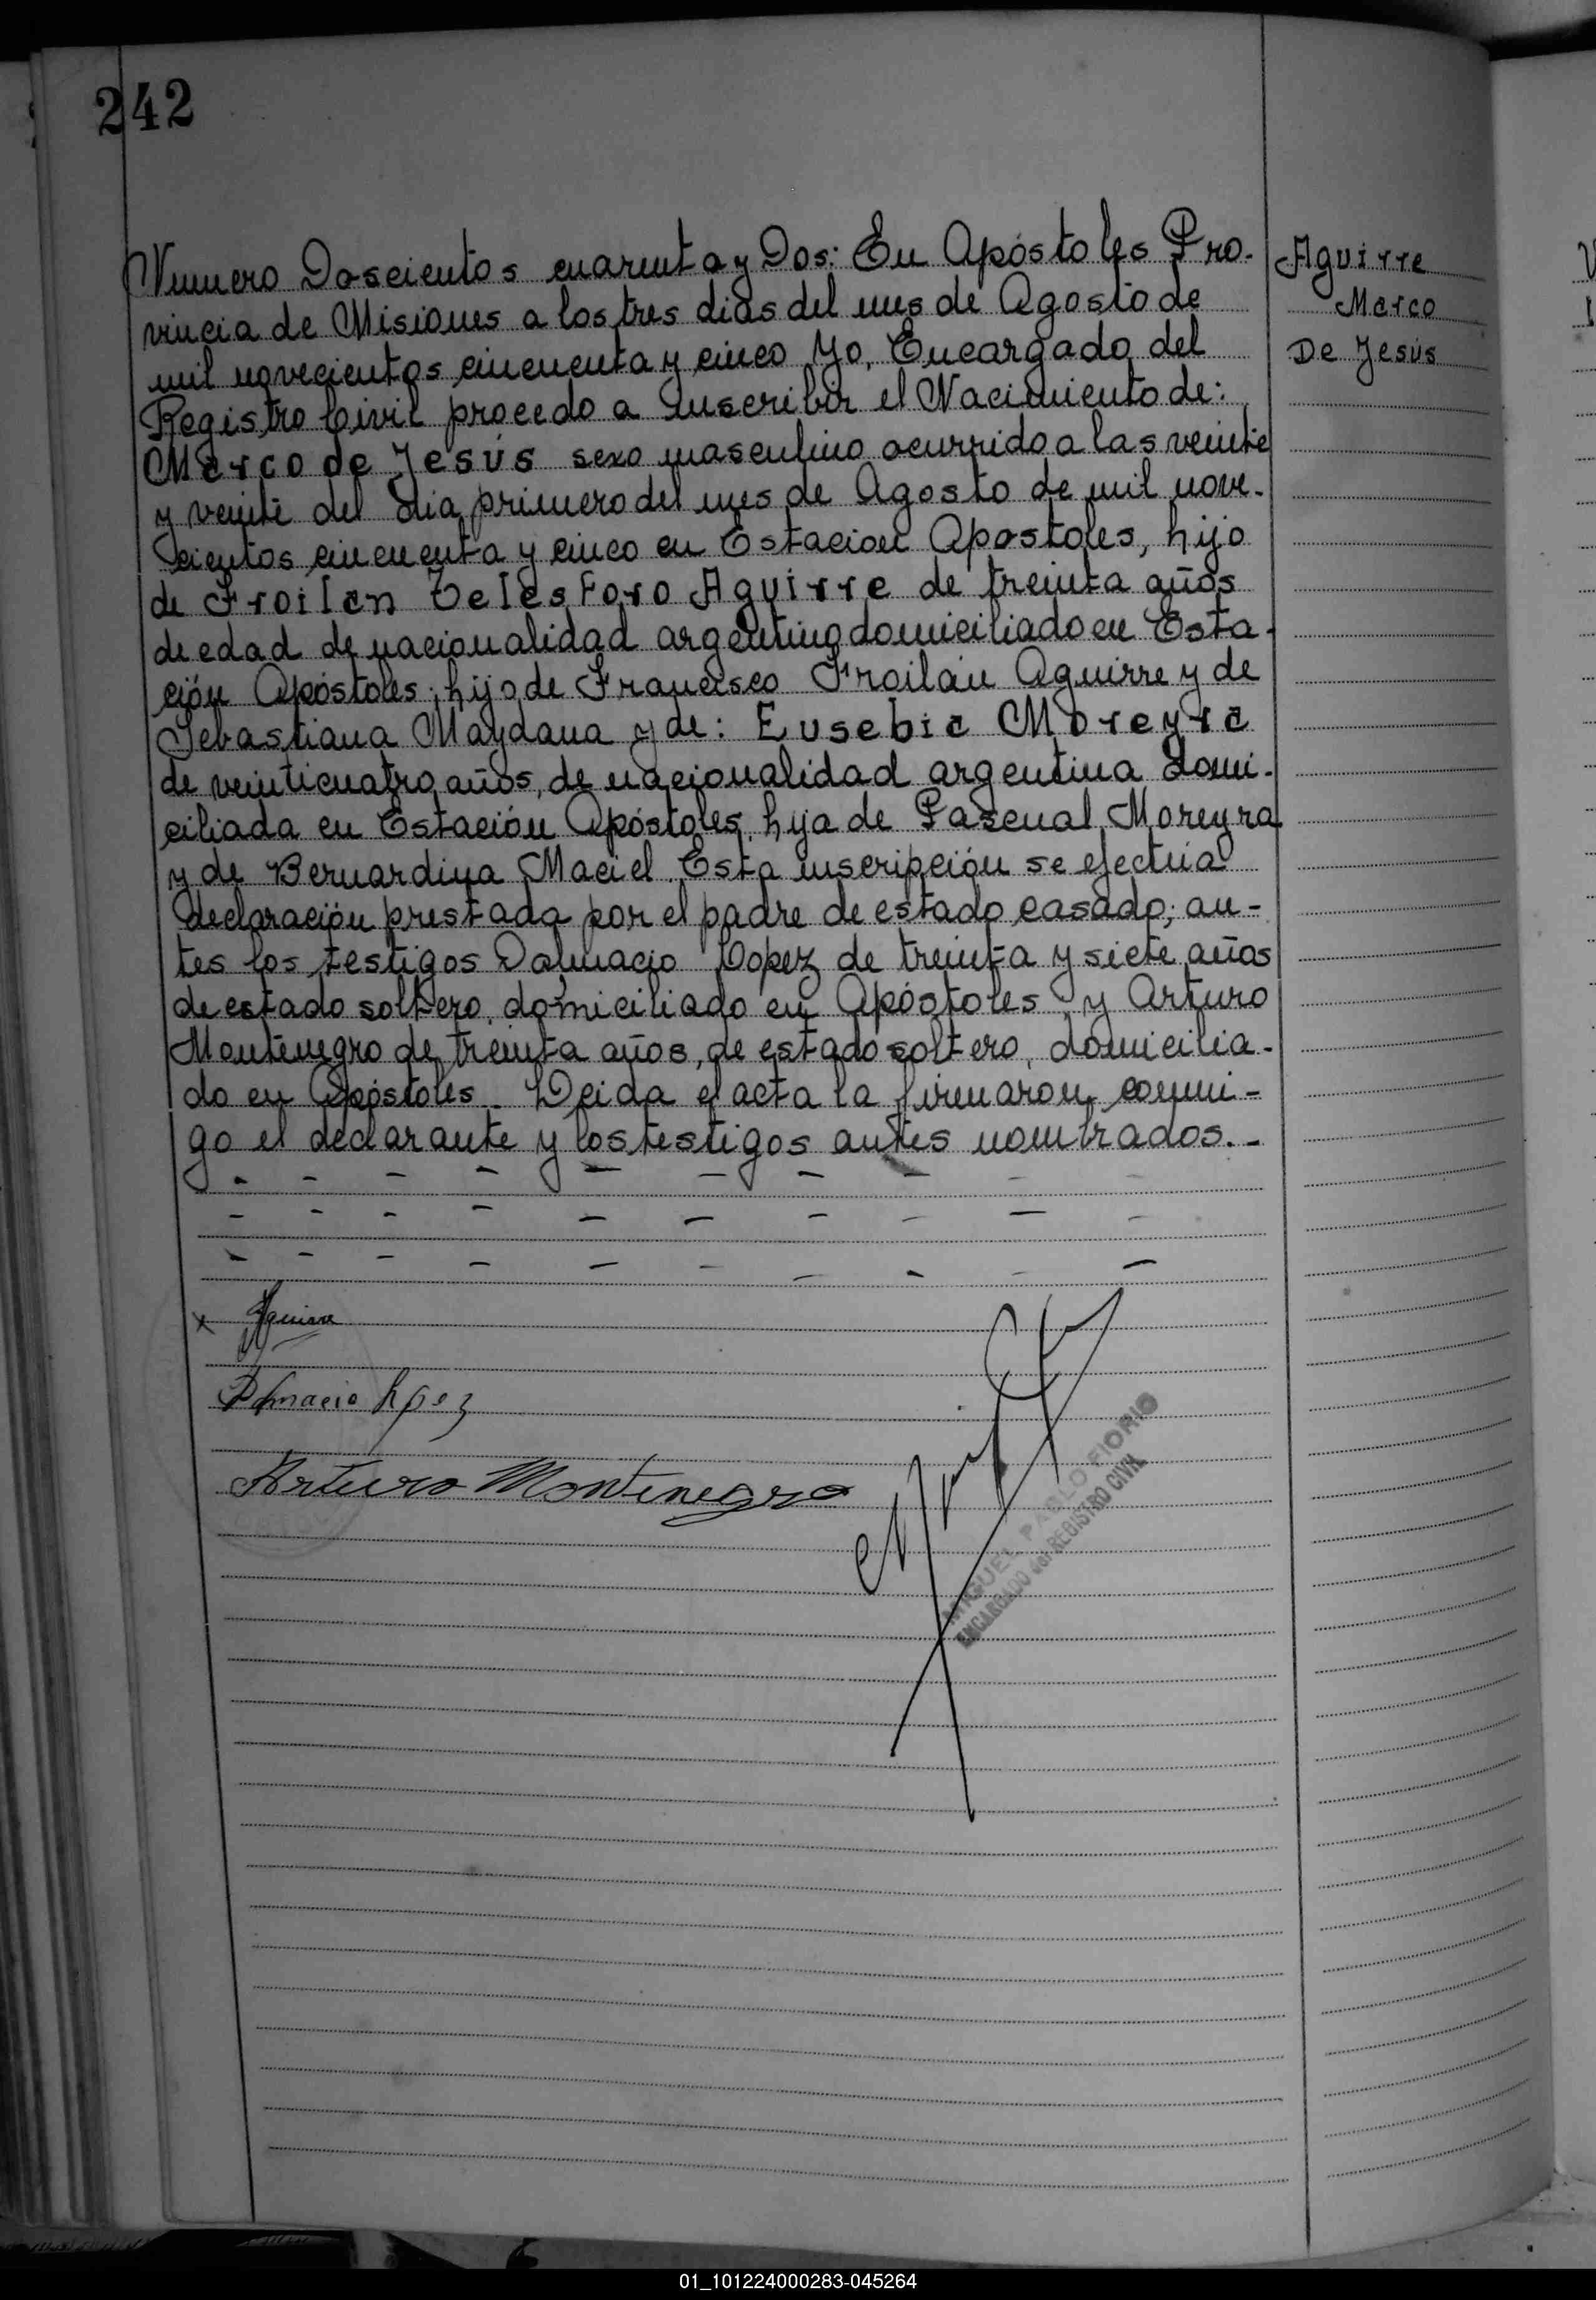 242
Numero Doscientos cuarenta y Dos: En Apóstoles Pro-
vincia de Misiones a los tres dias del mes de Agosto de
mil novecientos cincuenta y cinco Yo, Encargado del
Registro Civil procedo a Inscribir el Nacimiento de:
Marco de Jesús sexo masculino ocurrido a las veinte
y veinte del dia primero del mes de Agosto de mil nove-
cientos cincuenta y cinco en Estacion Apostoles, hijo
de Froilan Telesforo Aguirre de treinta años
de edad de nacionalidad argentino domiciliado en Esta-
ción Apóstoles, hijo de Francisco Froilán Aguirre y de
Sebastiana Maydana y de: Eusebia Moreyra
de veinticuatro años, de nacionalidad argentina domi-
ciliada en Estación Apóstoles, hija de Pascual Moreyra
y de Bernardina Maciel. Esta inscripción se efectúa
declaración prestada por el padre de estado casado; an-
tes los testigos Dalmacio Lopez de treinta y siete años
de estado soltero, domiciliado en Apóstoles y Arturo
Montenegro de treinta años, de estado soltero, domicilia-
do en Apóstoles. Leida el acta la firmaron conmi-
go el declarante y los testigos antes nombrados.-
Aguirre
Marco
De Jesús
x Aguirre
Dalmacio Lopez
Arturo Montenegro
MIGUEL PABLO FIORIO
ENCARGADO del REGISTRO CIVIL
01_101224000283-045264